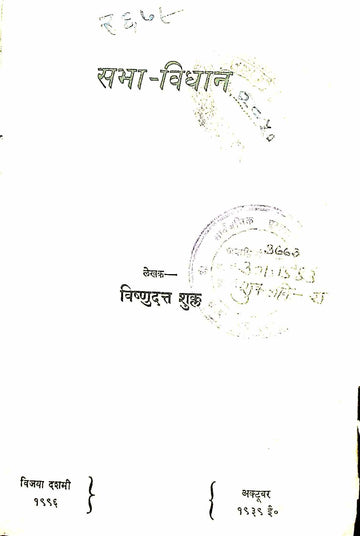 २६७८
सभा-विधान
लेखक—
विष्णुदत्त शुक्ल
3663
विजया दशमी
१९९६
अक्टूबर
१९३९ ई०